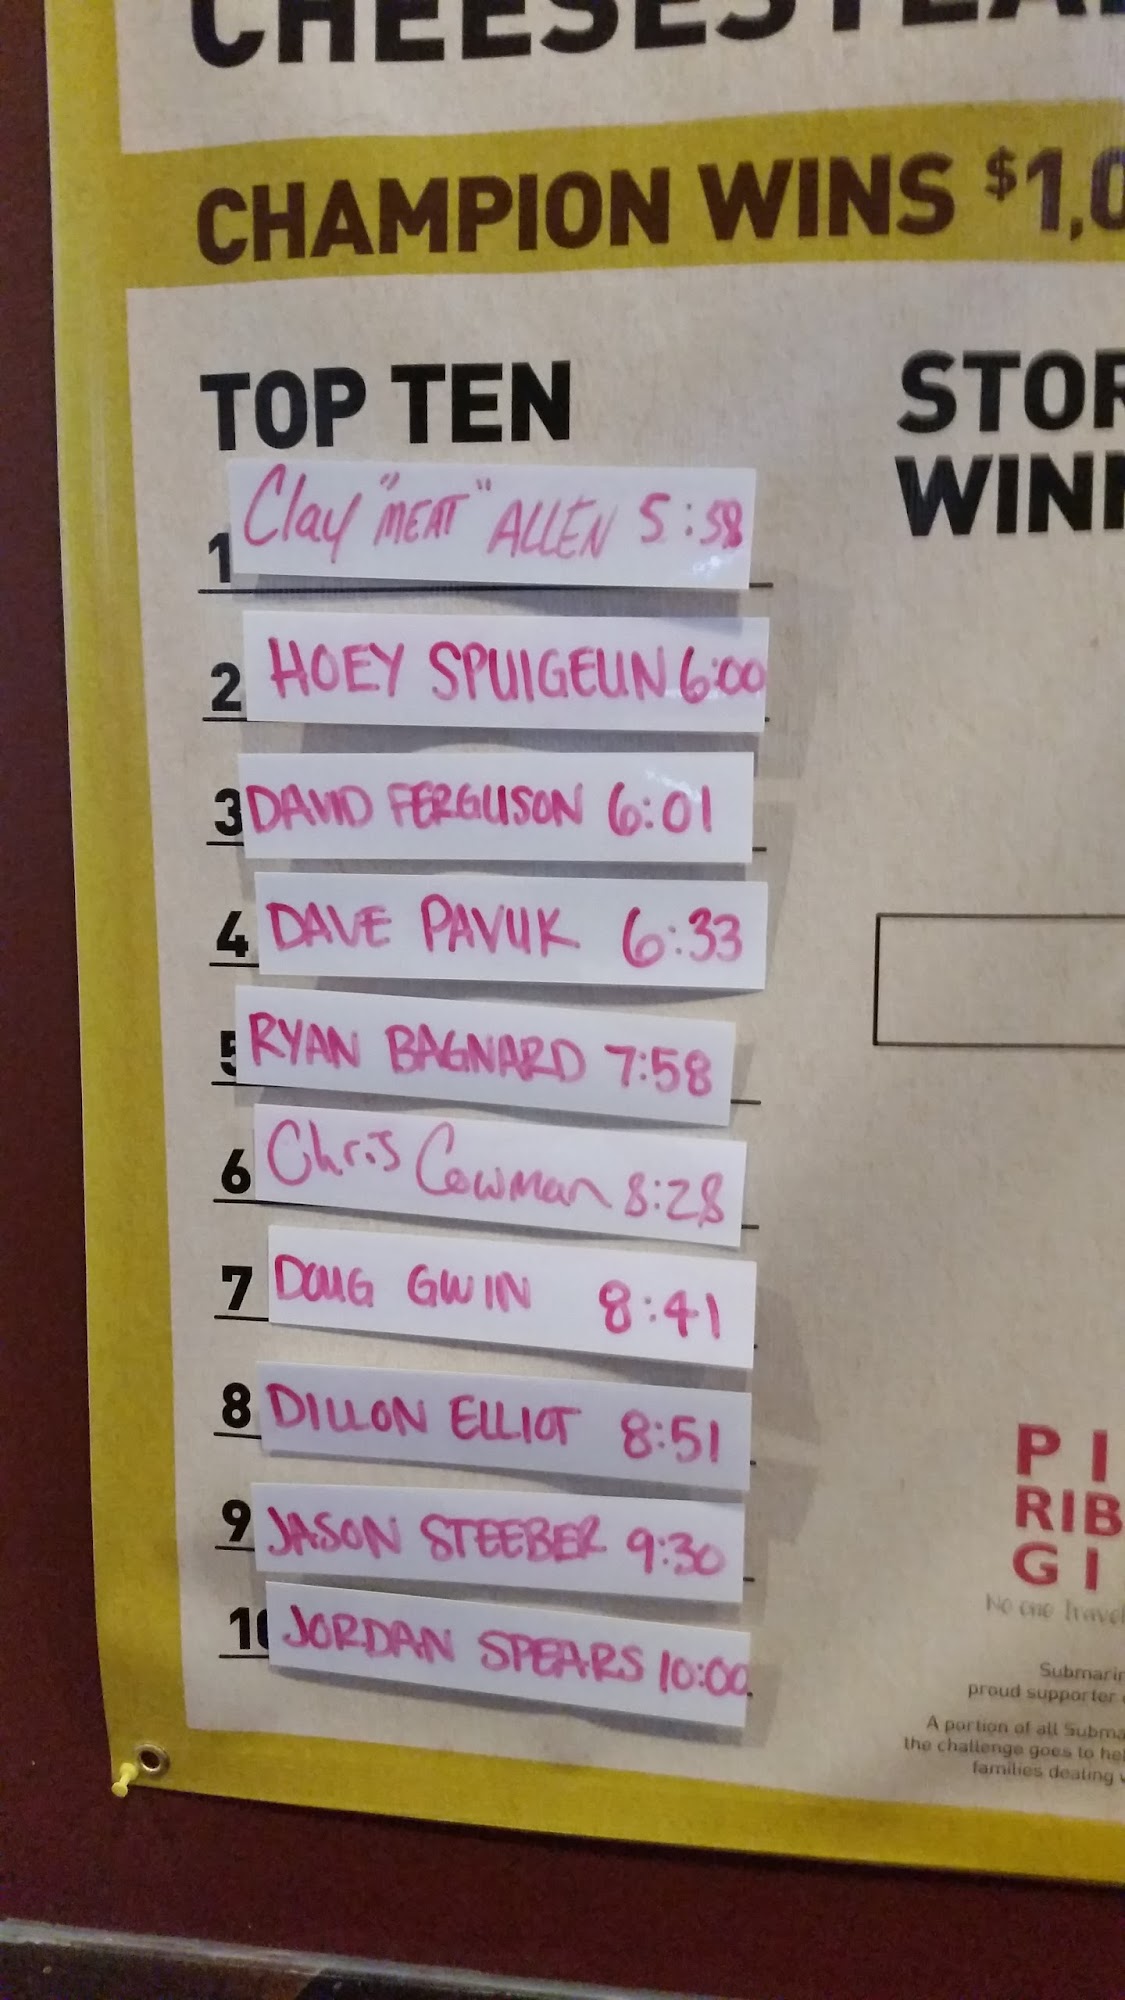 CHEESESTEA
CHAMPION WINS $1,0
TOP TEN
1 Clay "MEAT" ALLEN 5:58
2 HOEY SPUIGEUN 6:00
3 DAVID FERGUSON 6:01
4 DAVE PAVUK 6:33
5 RYAN BAGNARD 7:58
6 Chris Cowman 8:28
7 DOUG GWIN 8:41
8 DILLON ELLIOT 8:51
9 JASON STEEBER 9:30
10 JORDAN SPEARS 10:00
STOR
WINN
P I
RIB
G I
No one travel
Submarin
proud supporter
A portion of all Subma
the challenge goes to hel
families dealing